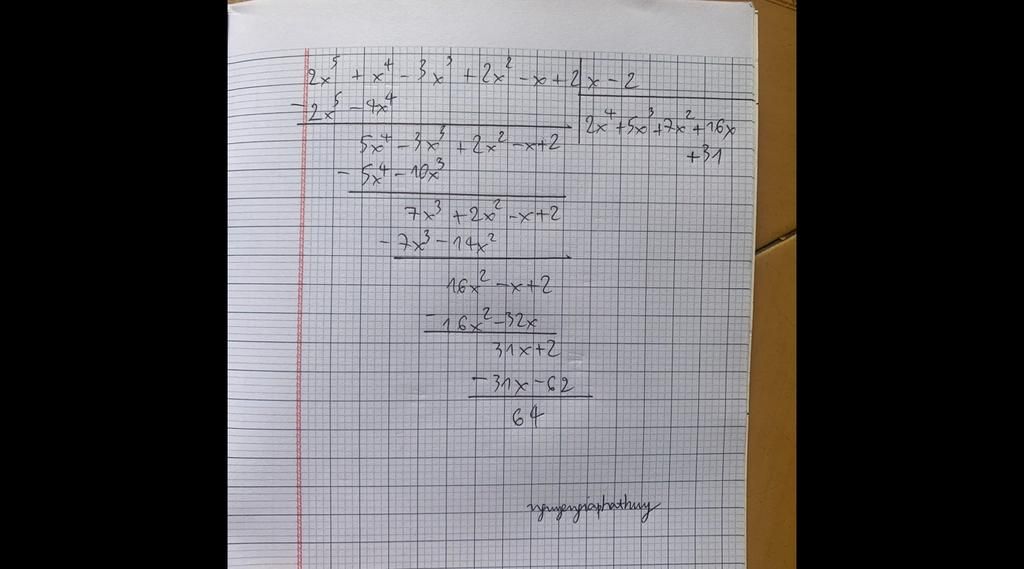 2x⁵ + x⁴ - 3x³ + 2x² - x + 2 | x - 2
- 2x⁵ - 4x⁴
2x⁴ + 5x³ + 7x² + 16x
+ 31
5x⁴ - 3x³ + 2x² - x + 2
- 5x⁴ - 10x³
7x³ + 2x² - x + 2
- 7x³ - 14x²
16x² - x + 2
- 16x² - 32x
31x + 2
- 31x - 62
64
nguyengiaphathuy